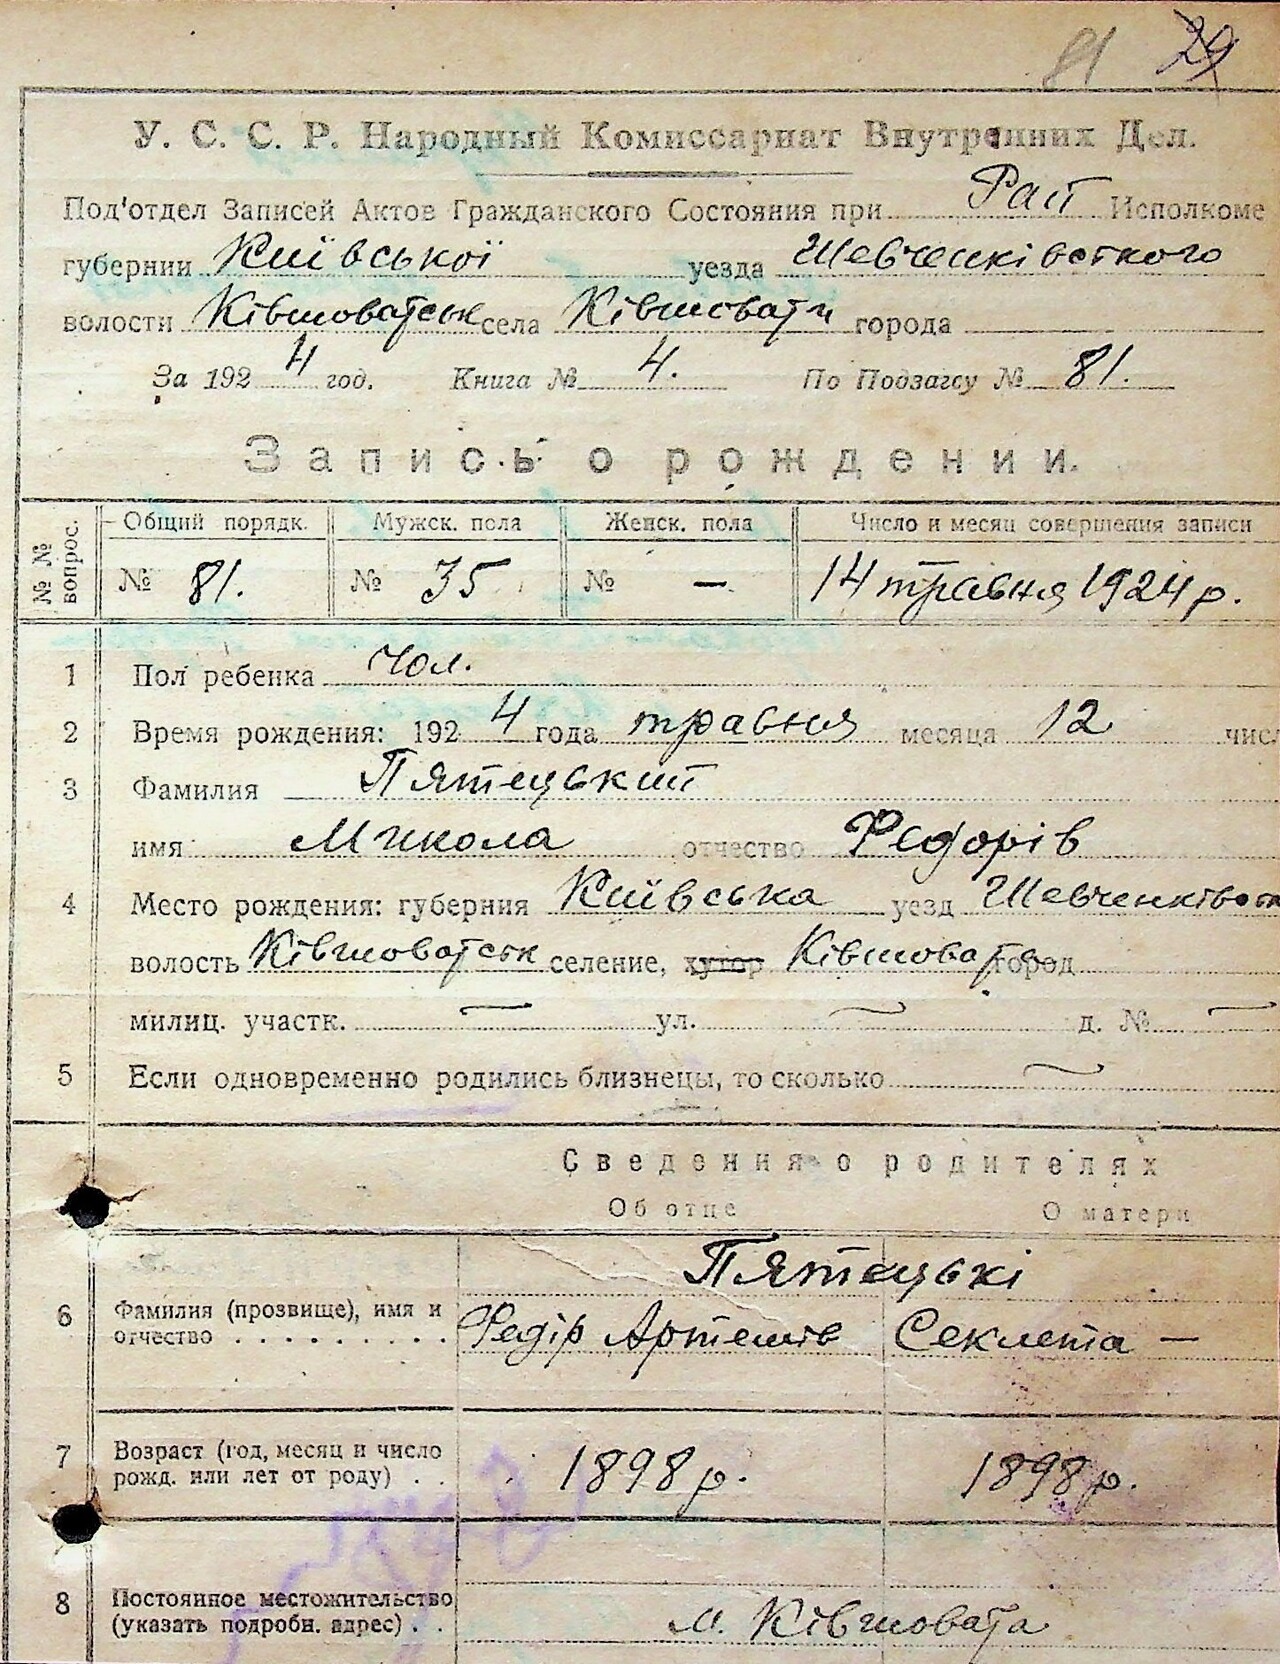 81 29
У. С. С. Р. Народный Комиссариат Внутренних Дел.
Под'отдел Записей Актов Гражданского Состояния при Рай Исполкоме
губернии Київської уезда Шевченківського
волости Ківшоватськ села Ківшовати города
За 1924 год. Книга № 4. По Подзагсу № 81.
Запись о рождении.
№ № вопрос. Общий порядк. Мужск. пола Женск. пола Число и месяц совершения записи
№ 81. № 35 № — 14 травня 1924 р.
1 Пол ребенка чол.
2 Время рождения: 1924 года травня месяца 12 числ
3 Фамилия Пятецький
имя Микола отчество Федорів
4 Место рождения: губерния Київська уезд Шевченківськ
волость Ківшоватськ селение, хутор Ківшовата город
милиц. участк. — ул. — д. № —
5 Если одновременно родились близнецы, то сколько —
Сведения о родителях
Об отце О матери
Пятецькі
6 Фамилия (прозвище), имя и
отчество . . . . . . . . . Федір Артемів Секлета —
7 Возраст (год, месяц и число
рожд. или лет от роду) . . 1898 р. 1898 р.
8 Постоянное местожительство
(указать подробн. адрес) . . м. Ківшовата